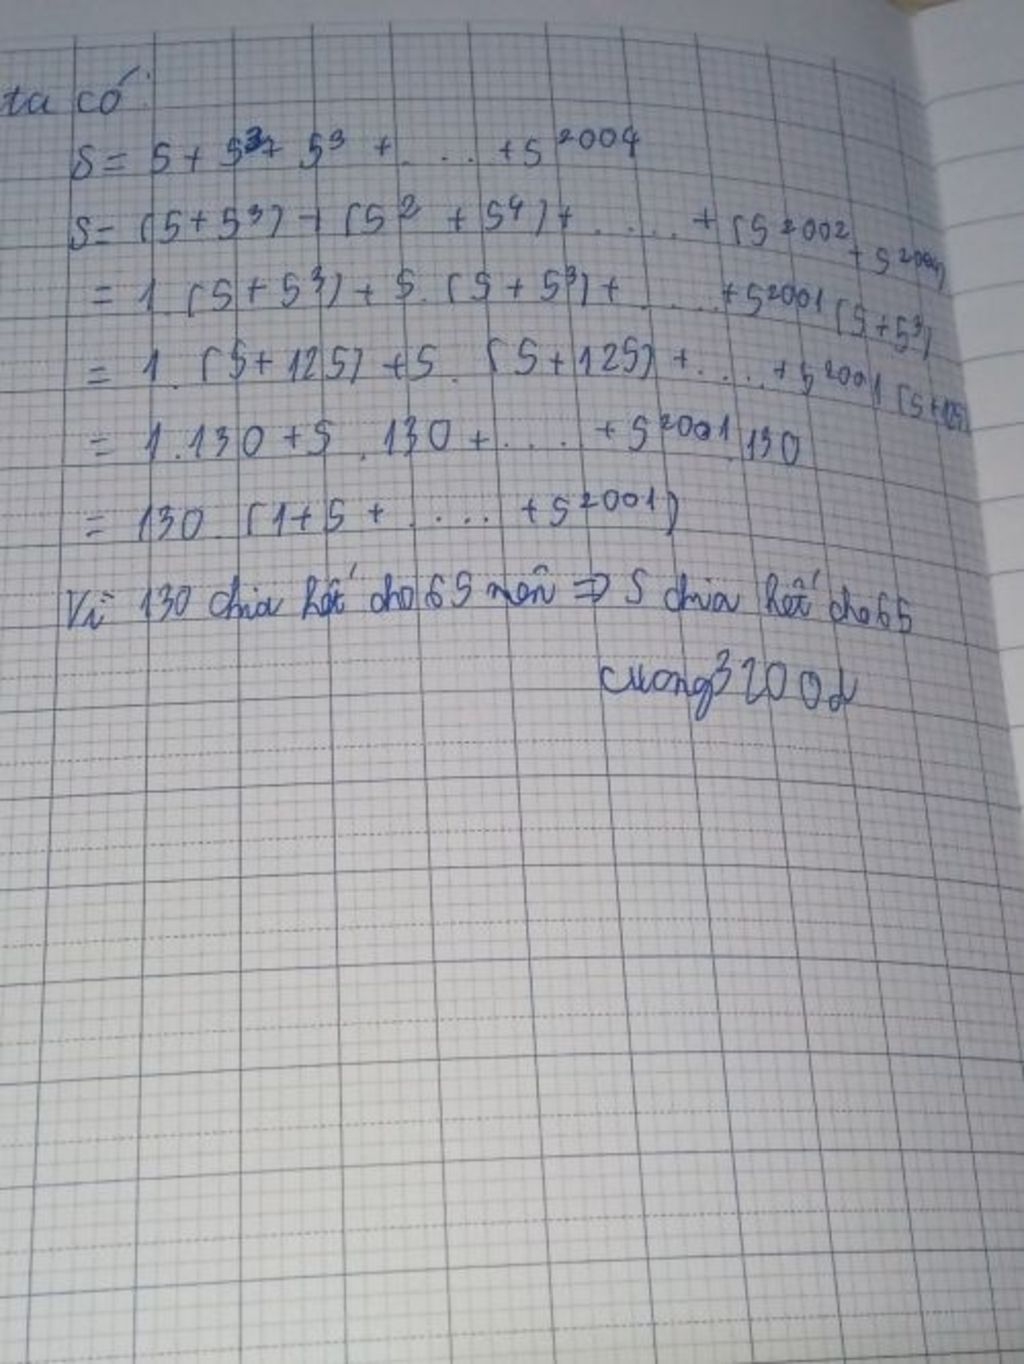 ta có:
S = 5 + 5² + 5³ + .... + 5²⁰⁰⁴
S = (5 + 5³) + (5² + 5⁴) + ..... + (5²⁰⁰² + 5²⁰⁰⁴)
= 1. (5 + 5³) + 5. (5 + 5³) + ..... + 5²⁰⁰¹ (5 + 5³)
= 1. (5 + 125) + 5. (5 + 125) + ..... + 5²⁰⁰¹ (5 + 125)
= 1.130 + 5.130 + ..... + 5²⁰⁰¹.130
= 130. (1 + 5 + .... + 5²⁰⁰¹)
Vì 130 chia hết cho 65 nên => S chia hết cho 65